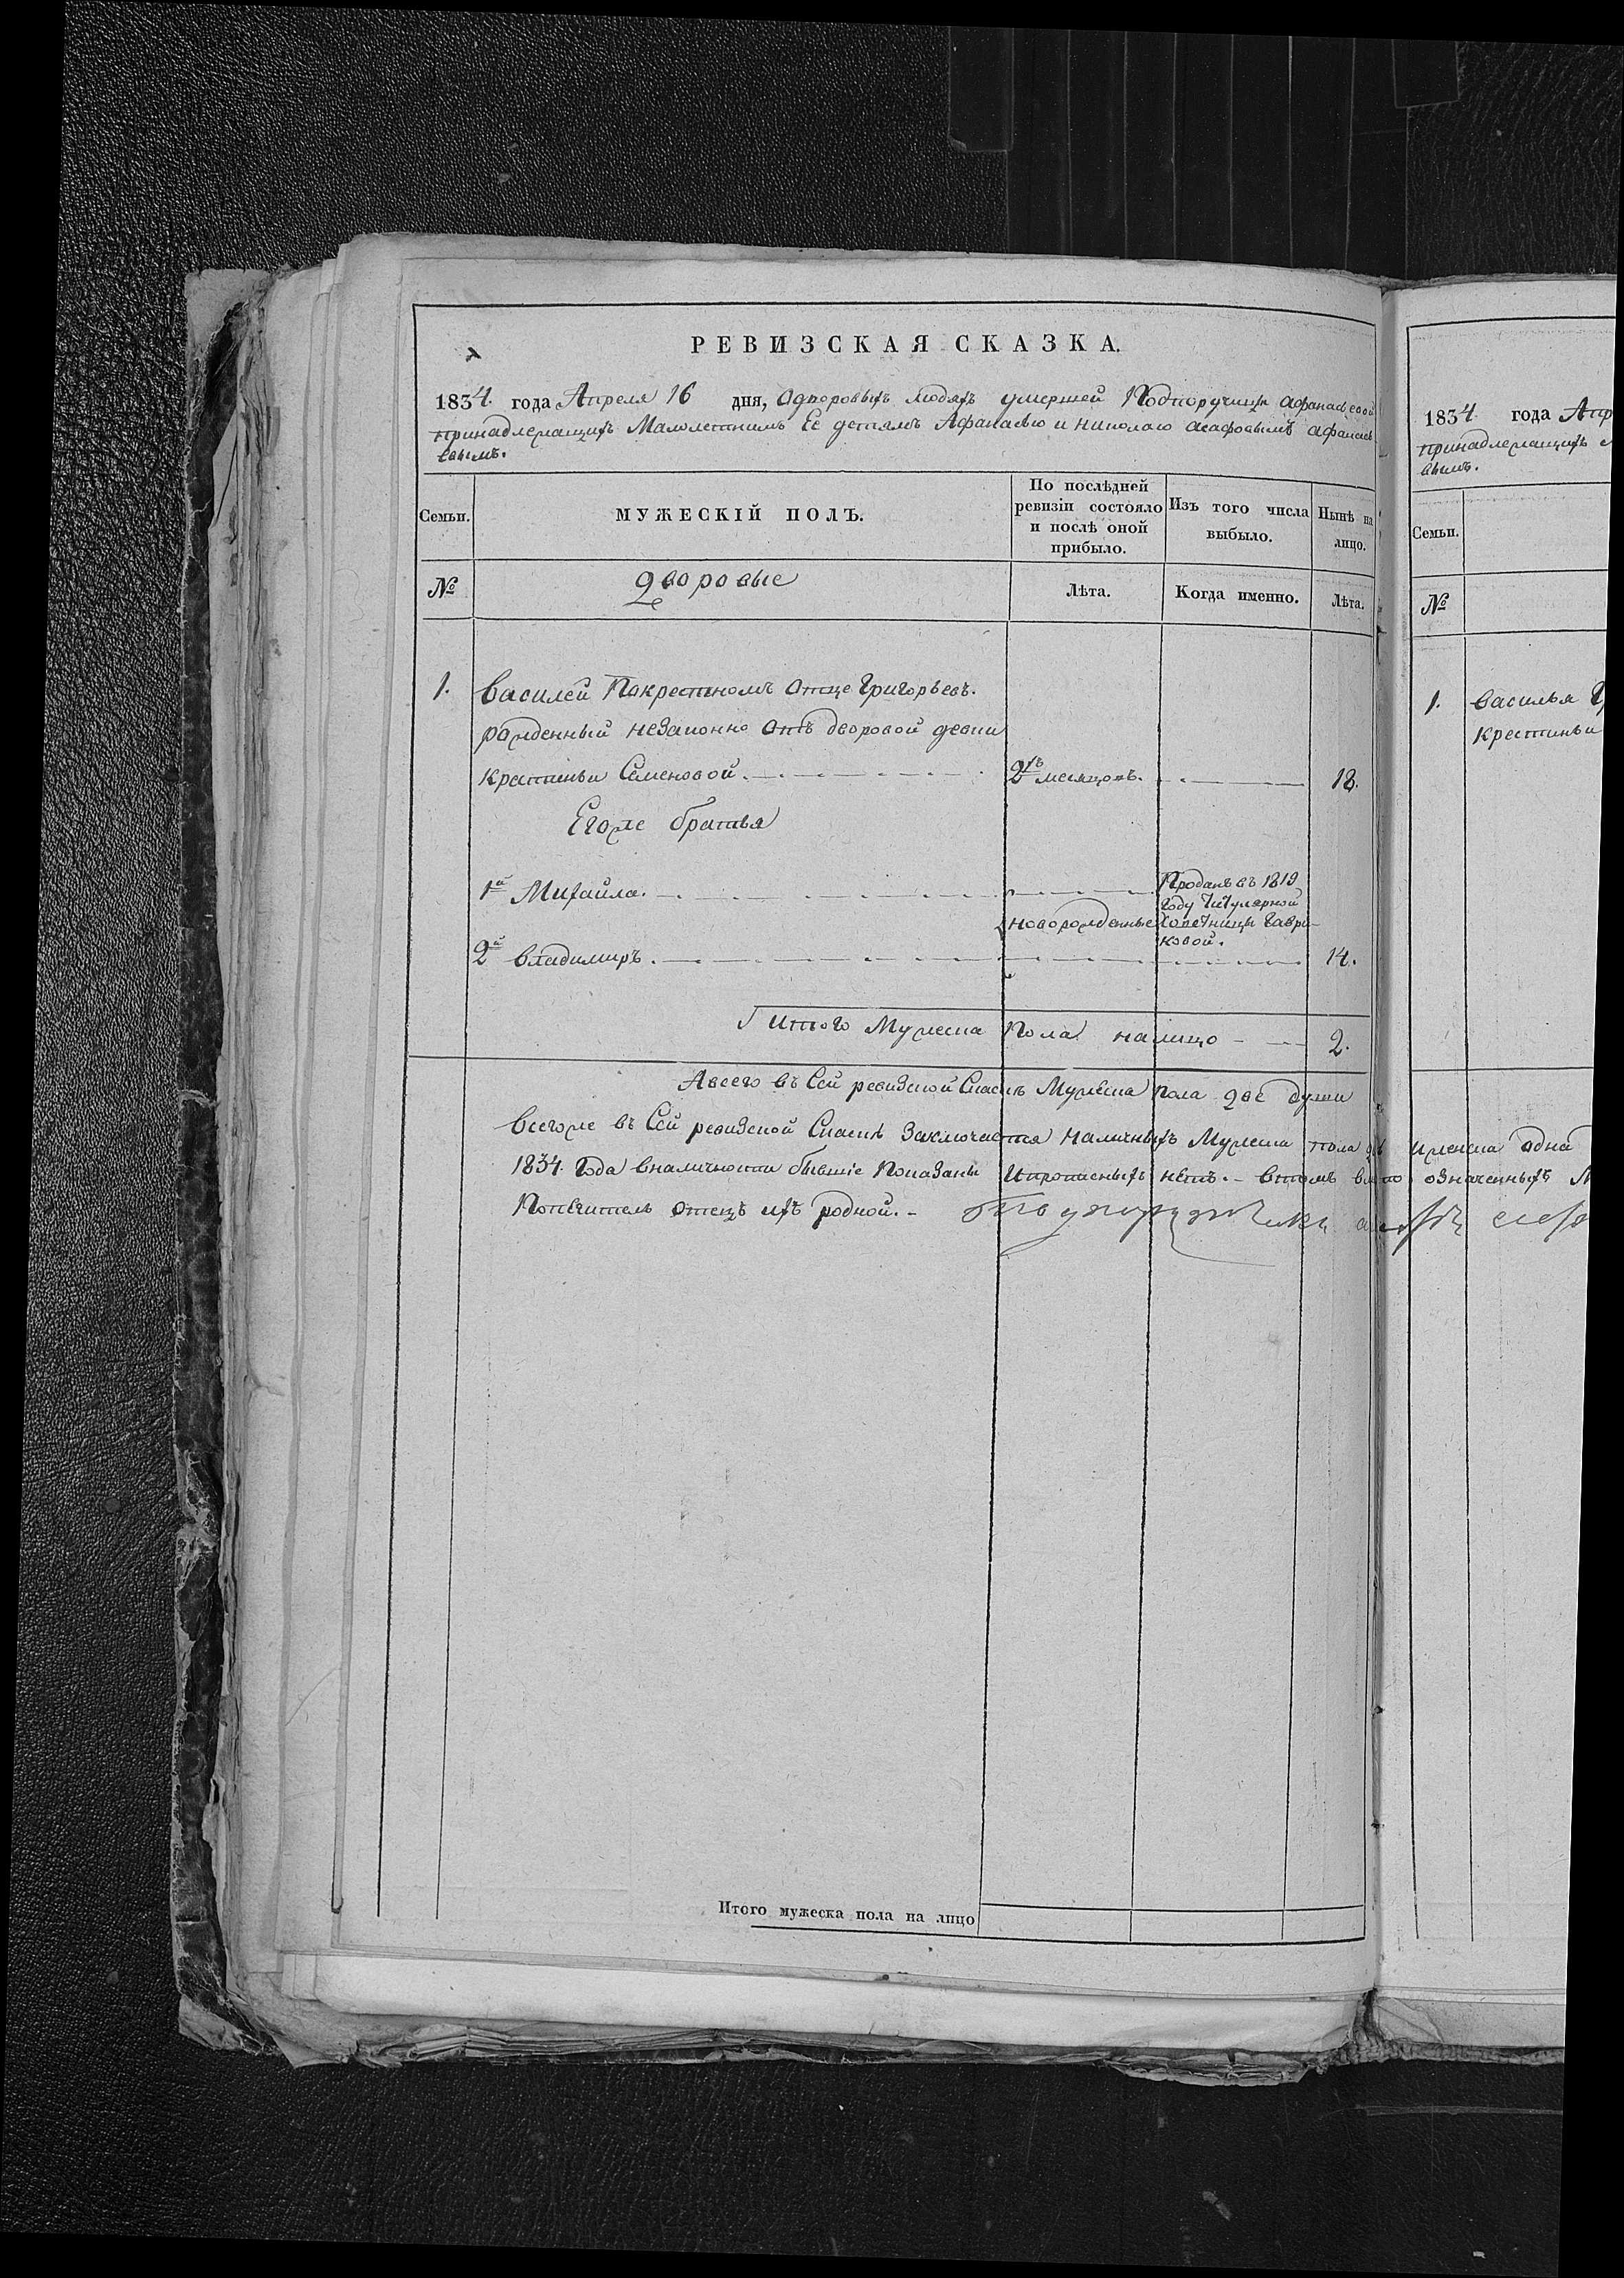 РЕВИЗСКАЯ СКАЗКА.
1834. года Апреля 16 дня, Одворовыхъ людяхъ умершей Подпоручицы Афанасьевой
принадлежащихъ Малолетнимъ Ее детямъ Афанасью и Николаю Асафовымъ Афанась
евымъ.
Семьи.
МУЖЕСКІЙ ПОЛЪ.
По послѣдней
ревизіи состояло
и послѣ оной
прибыло.
Изъ того числа
выбыло.
Нынѣ на
лицо.
№
Дворовые
Лѣта.
Когда именно.
Лѣта.
1. Василей Покрестномъ Отце Григорьевъ.
рожденный незаконно Отъ дворовой девки
Крестиньи Семеновой. 2хъ месяцовъ. 18.
Егоже братья
1й Михайла. Проданъ въ 1819
году Титулярной
новорожденные Советницы Гаври-
ковой.
2й Владимиръ. 14.
Итого Мужеска Пола налицо 2.
Авсего въ Сей ревизской Сказкѣ Мужеска Пола две души
Всегоже въ Сей ревизской Сказкѣ Заключается Наличныхъ Мужеска пола двѣ и женска Одна
1834. Года вналичности бывшіе Показаны Ипрописныхъ нетъ. – Втомъ вместо означенныхъ
Попѣчитель Отецъ ихъ родной. –
1834 года Апр
принадлежащихъ
вымъ.
Семьи.
№
1. Василья
Крестиньи
Итого мужеска пола на лицо